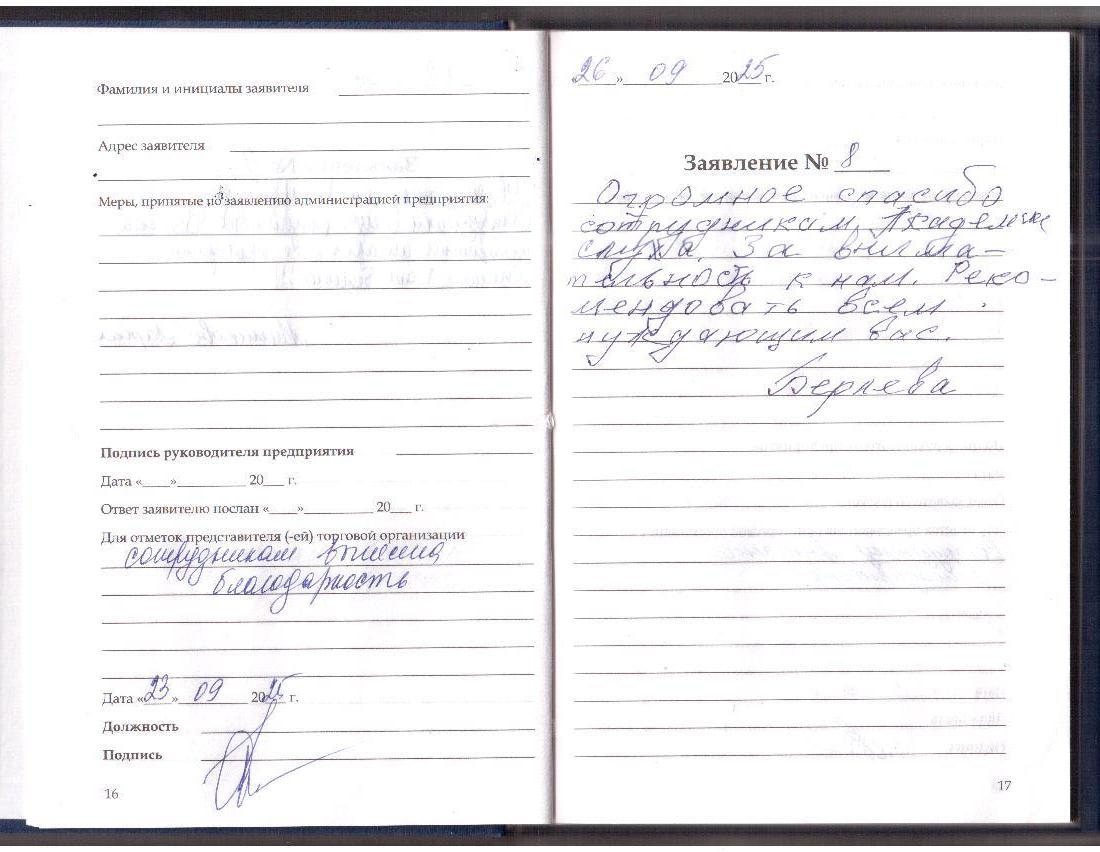 Фамилия и инициалы заявителя
Адрес заявителя
Меры, принятые по заявлению администрацией предприятия:
Подпись руководителя предприятия
Дата «____»__________ 20___ г.
Ответ заявителю послан «____»__________ 20___ г.
Для отметок представителя (-ей) торговой организации
сотрудникам вынесена
благодарность
Дата «23» 09 2025 г.
Должность
Подпись
16
26 » 09 2025 г.
Заявление № 8
Огромное спасибо
сотрудникам Академии
слуха. За внима-
тельность к нам. Реко-
мендовать всем
нуждающим вас.
17